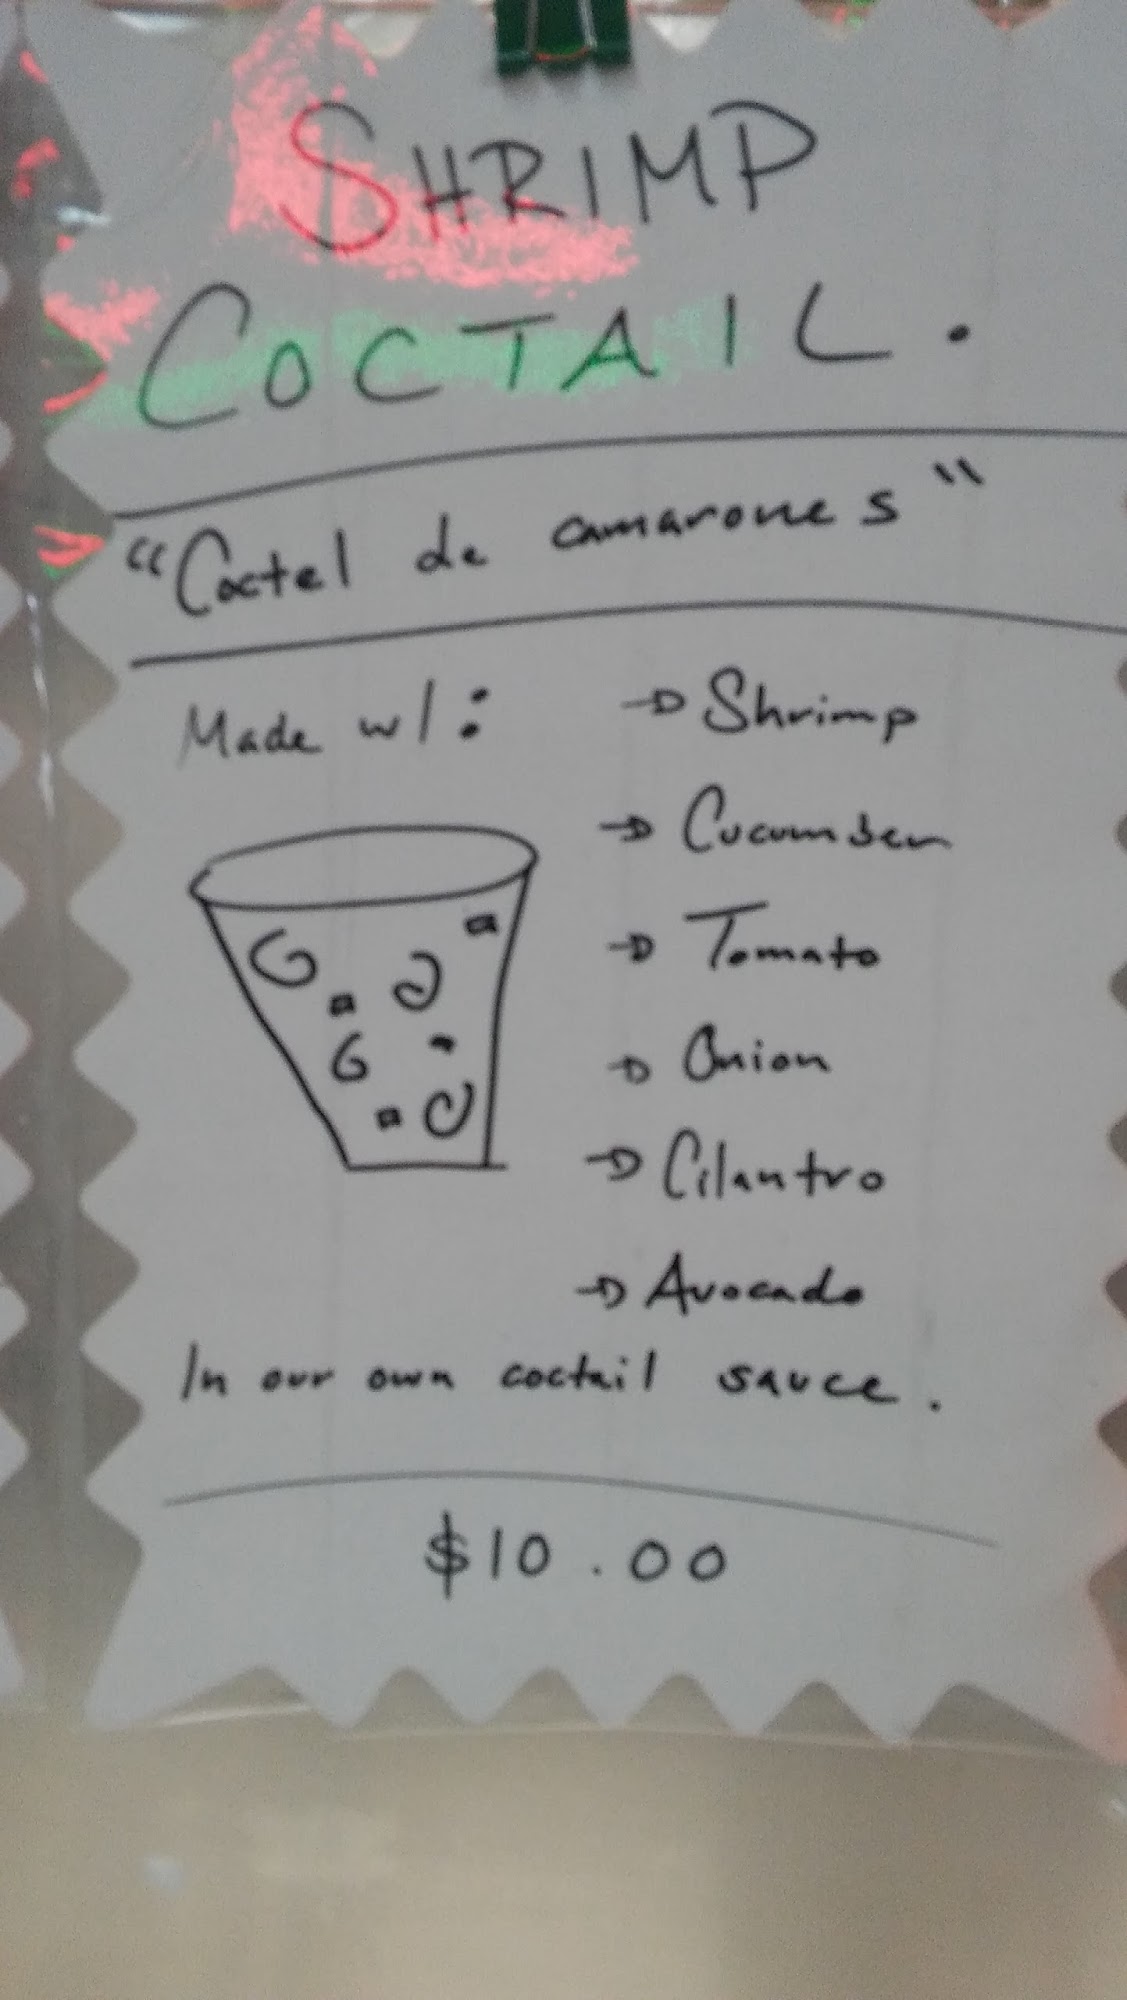 SHRIMP
COCTAIL.
"Coctel de camarones"
Made w/:
→ Shrimp
→ Cucumber
→ Tomato
→ Onion
→ Cilantro
→ Avocado
In our own coctail sauce.
$10.00